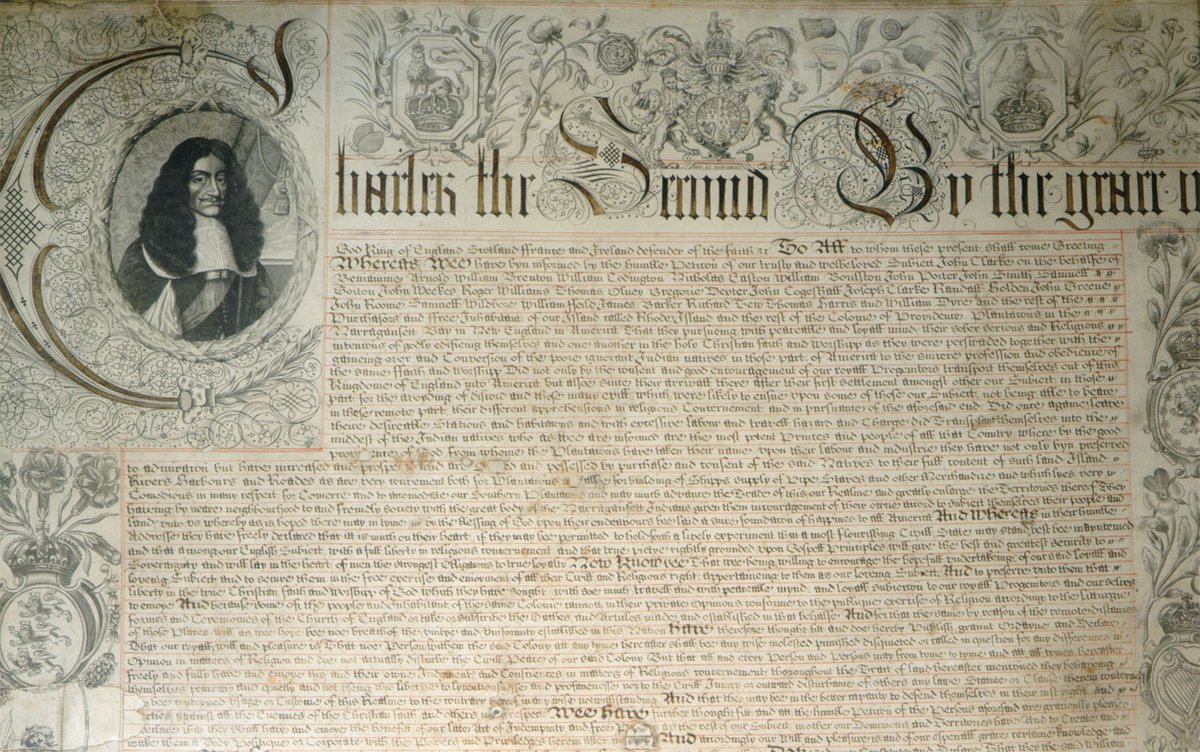 Charles the Second By the grace o
God King of England Scotland ffrance and Ireland defender of the faith &c To All to whom these present shall come Greeting
Whereas Wee have byn informed by the humble Petition of our trusty and welbeloved Subiect John Clarke on the behalfe of
Beniamine Arnold William Brenton William Codington Nicholas Easton William Boulston John Porter John Smith Samuell
Gorton John Weekes Roger Williams Thomas Olney Gregorie Dexter John Cogeshall Joseph Clarke Randall Holden John Greene
John Roome Samuell Wildbore William ffeild James Barker Richard Tew Thomas Harris and William Dyre and the rest of the
Purchasors and ffree Inhabitant of our Island called Rhode Island and the rest of the Colonie of Providence Plantations in the
Narragansett Bay in New England in America That they pursuing with peaceable and loyall mind their sober serious and Religious
intentons of godly edifieing themselves and one another in the holy Christian faith and Worshipp as they were perswaded together with the
gaineing over and Conversion of the poore ignorant Indian natives in those part of America to the sincere profession and obedience of
the same ffaith and Worshipp Did not only by the consent and good encouragement of our royall Progenitors transport themselves out of this
Kingdome of England into America but alsoe since their arrivall there after their first settlement amongst other our Subiect in those
part for the avoyding of discord and those many evill which were likely to ensue upon some of those our Subiect not being able to beare
in these remote part their different apprehensions in religious Concernement and in pursuance of the aforesaid end Did once againe leave
their desireable Stations and habitacons and with excessive labour and travell hazard and Charge did Transplant themselves into the
middest of the Indian natives who as wee are informed are the most potent Princes and people of all that Country where by the good
Providence of God from whome the Plantations have taken their name upon their labour and industrie they have not only byn preserved
to admiration but have increased and prospered and are possessed by purchase and consent of the said Natives to their full content of such land Island
Rivers Harbours and Roades as are very convenient both for Plantations and alsoe for building of Shipps supply of Pipe Staves and other Merchandize and which lyes very
Comodious in many respect for Comerce and to accomodate our Southern Plantations and may much advance the Trade of this our Realme and greatly enlarge the Territories thereof They
haveing by neare neighbourhood to and friendly society with the great body of the Narragansett Indians given them incouragement of their owne accord to subiect themselves their people and
land unto us whereby as is hoped there may in tyme by the blessing of God upon their endeavours bee laid a sure foundaton of happines to all America And Whereas in their humble
Addresse they have freely declared that it is much on their heart if they may bee permitted to hold forth a lively experiment that a most flourishing Civill State may stand and best bee maintained
and that among our English Subiect with a full liberty in religious concernement and that true pietye rightly grounded upon Gospell Principles will give the best and greatest security to
Soveraignty and will lay in the heart of men the strongest Obligations to true loyalty Now Know yee That wee being willing to encourage the hopefull undertakeing of our said loyall and
loveing Subiect and to secure them in the free exercise and enioyment of all their Civill and Religious right apperteining to them as our loveing Subiect And to preserve unto them that
liberty in the true Christian faith and worshipp of God which they have sought with soe much travell and with peaceable mynd and loyall subiection to our royall Progenitors and our selves
to enioye And because some of the people and Inhabitant of the same Colonie cannot in their private Opinions conforme to the publique exercise of Religion according to the Liturgie
formes and Ceremonies of the Church of England or take or subscribe the Oathes and Articles made and established in that behalfe And for that the same by reason of the remote distances
of those Places will as wee hope bee noe breach of the unitye and Uniformity established in this Nation Have therefore thought fit and doe hereby Publish graunt Ordeyne and Declare
That our royall will and pleasure is That noe Person within the said Colony att any tyme hereafter shall bee any wise molested punished disquieted or called in question for any differences in
Opinion in matters of Religion and doe not actually disturbe the Civill Peace of our said Colony But that all and every Person and Persons may from tyme to tyme and att all tymes hereafter
freely and fully have and enioye his and their owne Judgement and Consciences in matters of Religious concernement throughout the Tract of land hereafter mentioned they behaveing
themselves peaceably and quietly and not useing this libertie to Licentiousnesse and profanenesse nor to the Civill Iniury or outward disturbance of others any Lawe Statute or Clause therein
usage or Custome of this Realme to the contrary hereof in any wise notwithstanding And that they may bee in the better capacity to defend themselves in their iust right and
against all the Enemies of the Christian faith and others Wee have further thought fit and att the humble Petition of the Persons aforesaid are gratiously pleased
declare That they shall have and enioye the benefit of our late Act of Indempnity and free And accordingly our Will and pleasure is and of our especiall grace certaine knowledge and
make them a Body Politique or Corporate with the Powers and Priviledges herein after